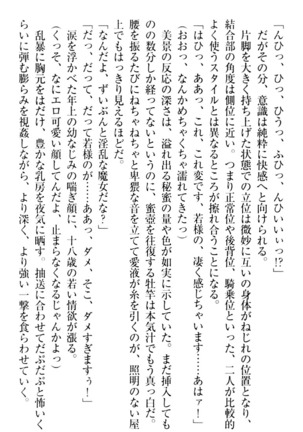 「んひっ、ひっ、ひっ、ふひっ、んひぃいぃっ!?」
だがその分、意識は純粋に快感へと向けられる。
片脚を大きく持ち上げた状態での立位は微妙に互いの身体がねじれの位置となり、
結合部の角度は側位に近い。つまり正常位や後背位、騎乗位といった、二人が比較的
よく使うスタイルとは異なるところが擦れ合うことになる。
「はひっ、ああっ、これ、これ変です、若様の、凄く感じちゃいます……あはァ!」
(おおっ、なんかめちゃくちゃ濡れてきたっ)
美景の反応の深さは、溢れ出る秘蜜の量や色が如実に示していた。まだ挿入しても
のの数分しか経ってないというのに、蜜壺を往復する牡竿は本気汁でもう真っ白だ。
腰を振るたびにねちゃねちゃと卑猥な音を立てて愛液が糸を引くのが、照明のない屋
上でもはっきり見えるほどだ。
「なんだよ、ずいぶんと淫乱な魔女だな?」
「だっ、だって、だって若様のが……ああっ、ダメ、そこ、ダメすぎますぅ!」
涙を浮かべた年上の幼なじみの喘ぎ顔に、十八歳の若い情欲が漲る。
(くっそ、なにエロ可愛い顔してんだよ、止まらなくなるじゃんかよっ)
乱暴に胸元をはだけ、豊かな乳房を夜気に晒す。抽送に合わせてだぷだぷと怖いく
らいに弾む膨らみを視姦しながら、より深く、より強い一撃を食らわせていく。